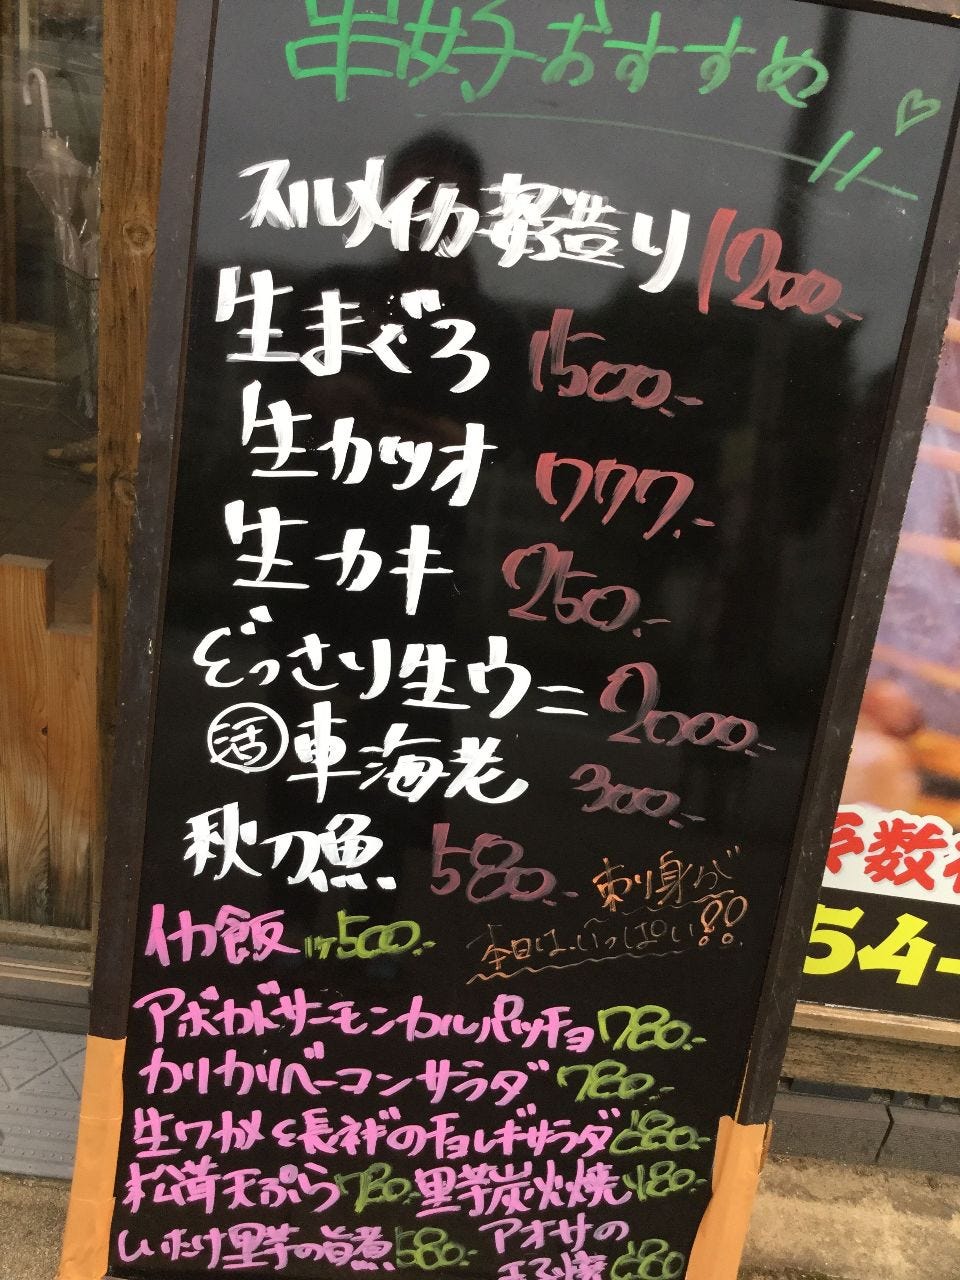 串好おすすめ!!
スルメイカ姿造り 1200.-
生まぐろ 1500.-
生カツオ 777.-
生カキ 250.-
どっさり生ウニ 2000.-
活 車海老 300.-
秋刀魚 580.-
刺り身が
本日は、いっぱい!!
イカ飯 1ケ500.-
アボカドサーモンカルパッチョ 780.-
カリカリベーコンサラダ 780.-
生ワカメと長芋のチョレギサラダ 680.-
松茸天ぷら 780.- 里芋炭火焼 480.-
しいたけ里芋の旨煮 580.- アオサの
玉子焼 680
数
54-